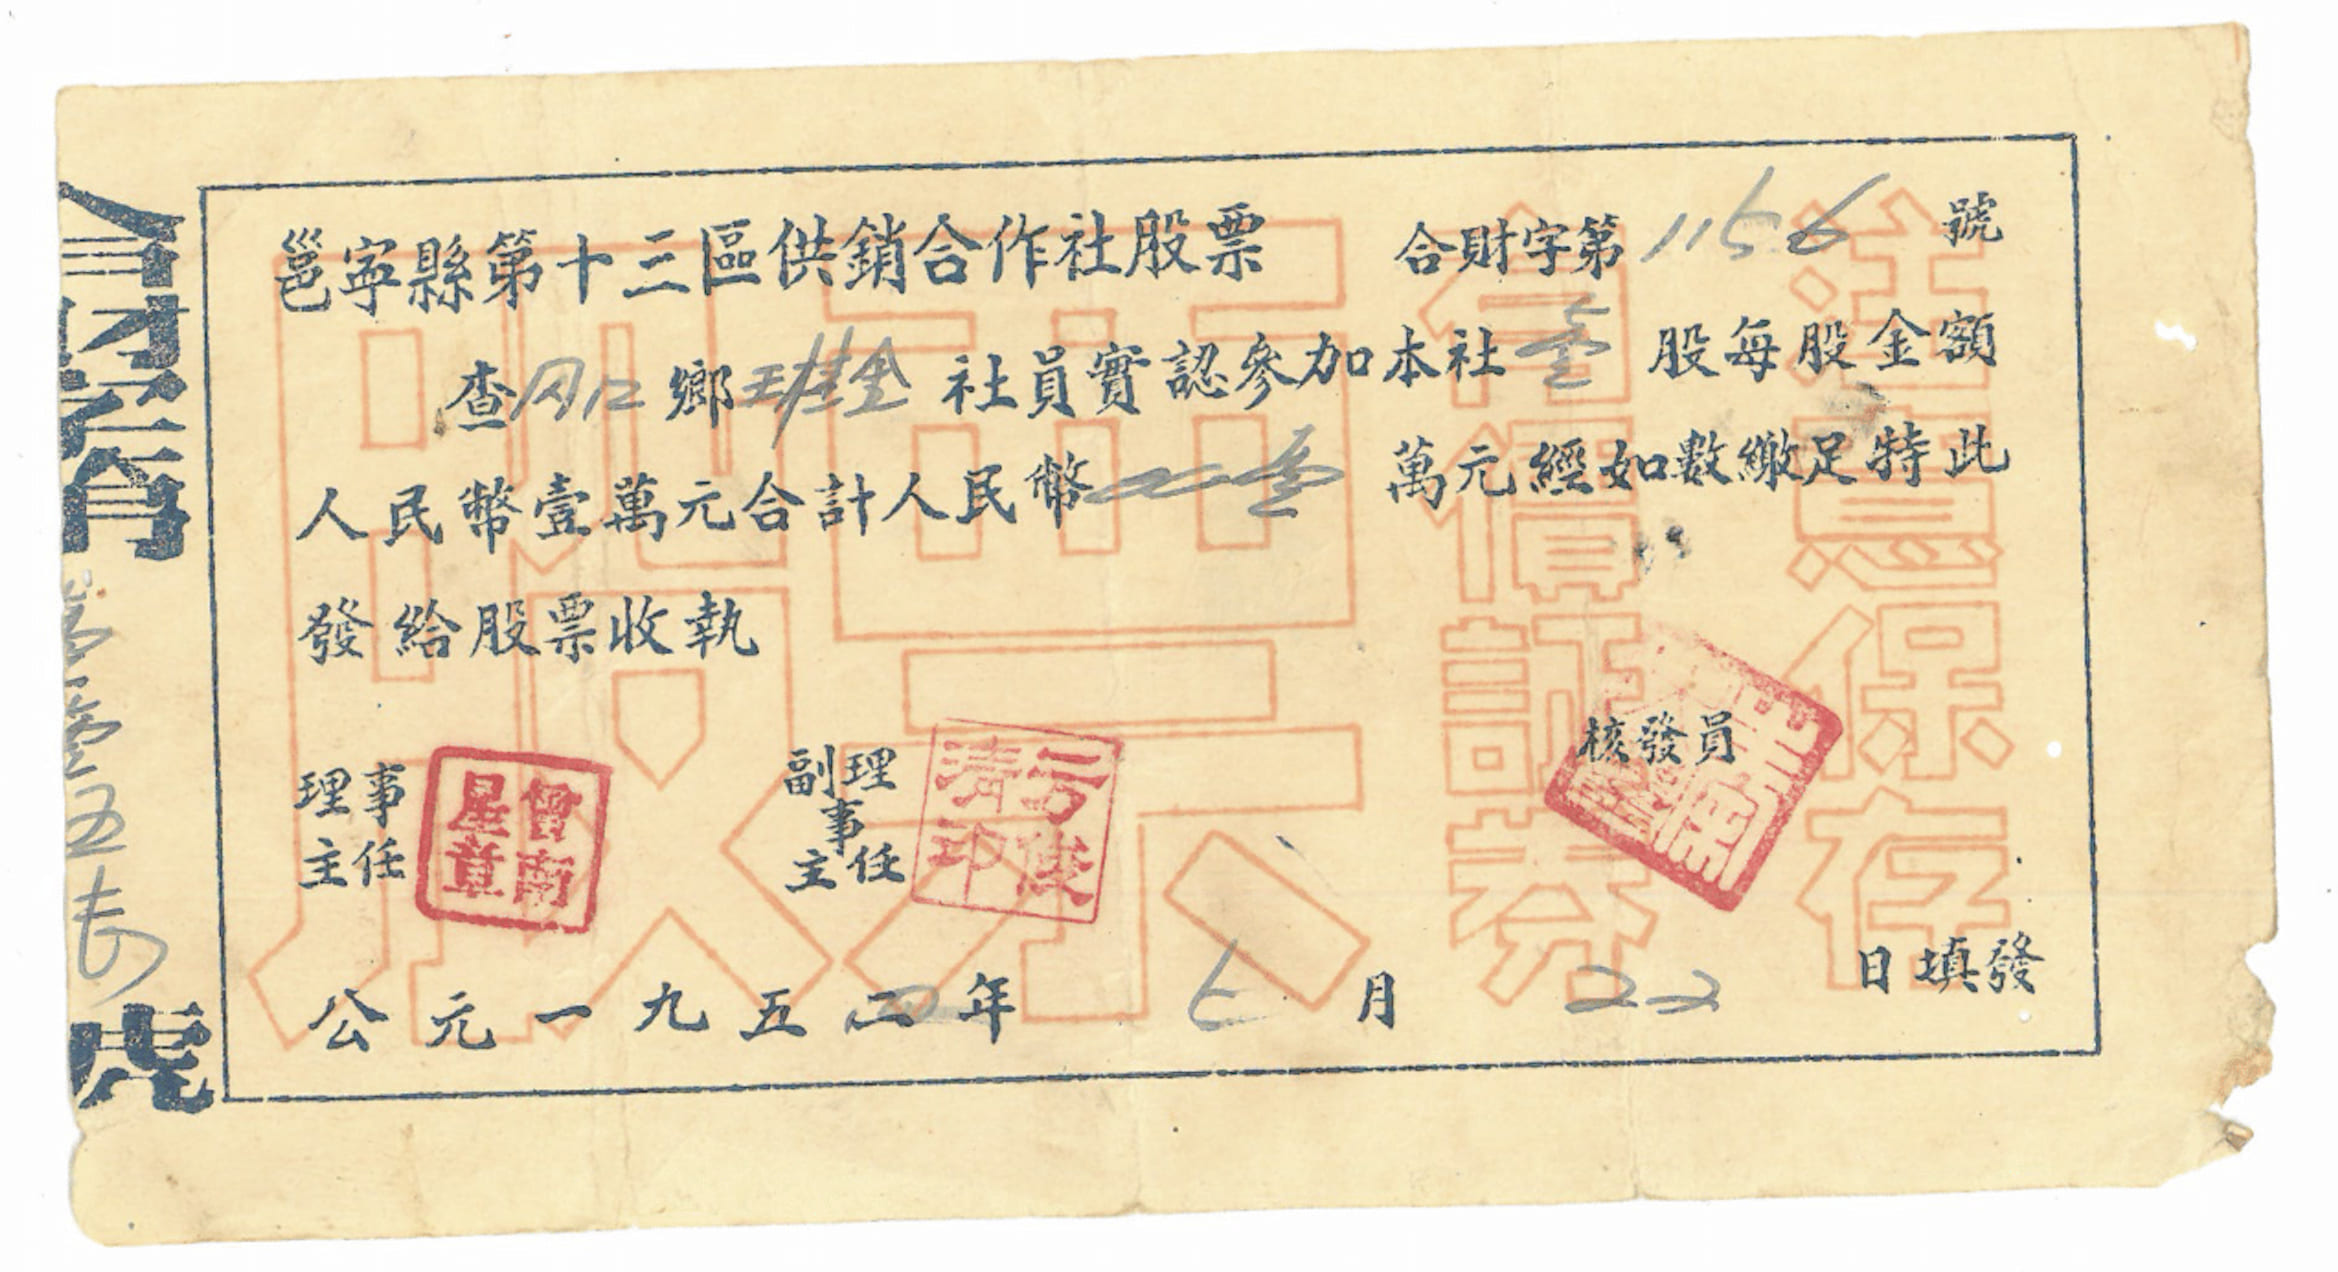 邕寧縣第十三區供銷合作社股票 合財字第1156號
查 鄉班基金社員實認參加本社壹股每股金額
人民幣壹萬元合計人民幣 壹萬元經如數繳足特此
發給股票收執
理事主任
曾南星章
副理事主任
清印
核發員
公元一九五四年 月22日填發
股票
有價証券
注意保存
合財字第
號